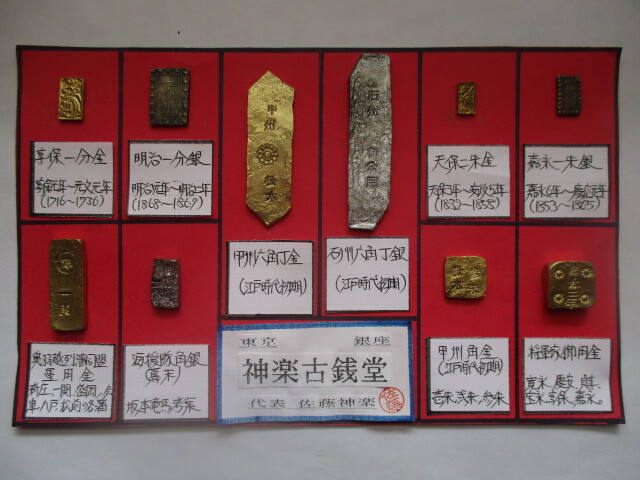 享保一分金
享保元年～元文元年
(1716～1736)
明治一分銀
明治元年～明治二年
(1868～1869)
甲州
甲州六角丁金
(江戸時代初期)
石州
石州六角丁銀
(江戸時代初期)
天保二朱金
天保3年～安政5年
(1832～1858)
嘉永一朱銀
嘉永6年～慶応元年
(1853～1865)
奥羽越列藩同盟
軍用金
海援隊角銀
(幕末)
坂本竜馬考案
東京 銀座
神楽古銭堂
代表 佐藤神楽
佐藤
甲州角金
(江戸時代初期)
壱朱、弐朱、参朱
将軍家御用金
宝永、享保、嘉永。